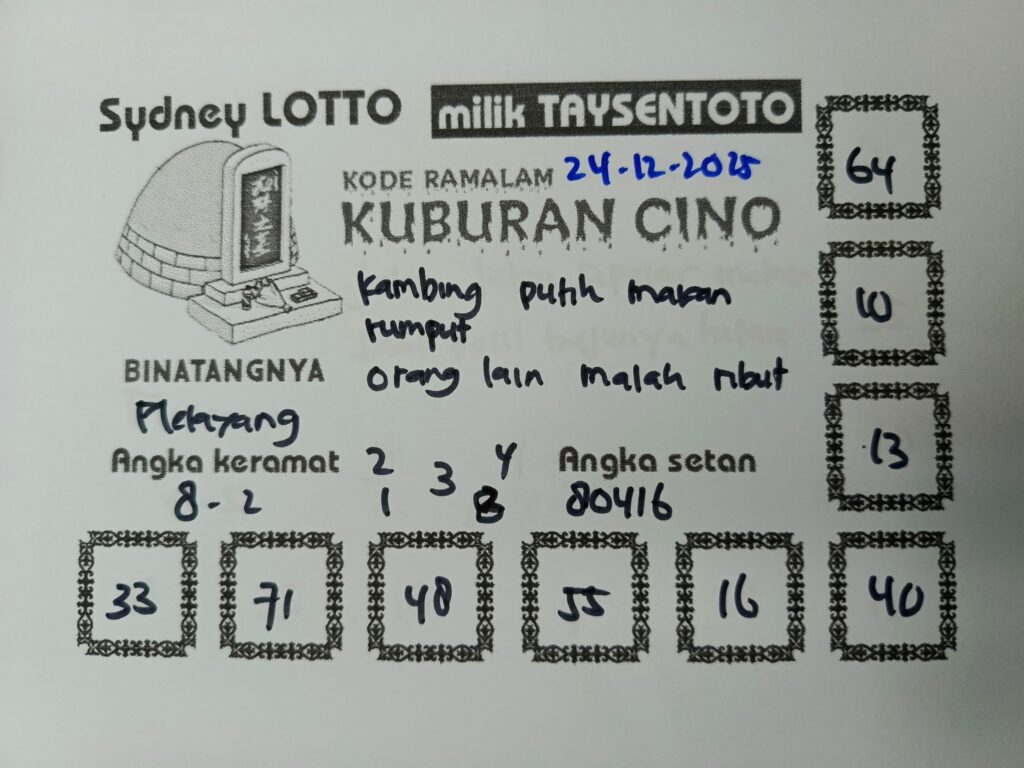 Sydney LOTTO milik TAYSENTOTO
KODE RAMALAM 24-12-2025
KUBURAN CINO
Kambing putih makan
rumput
orang lain malah ribut
BINATANGNYA
Angka keramat
8-2
2 3 4
1 8
Angka setan
80416
64
10
13
33 71 48 55 16 40